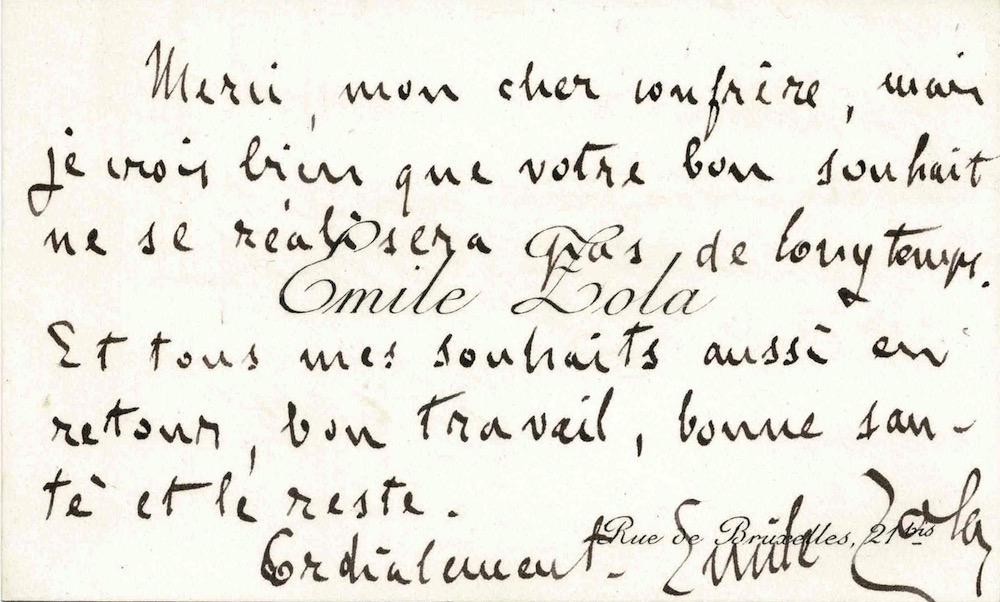 Merci, mon cher confrère, mais
je crois bien que votre bon souhait
ne se réalisera pas de longtemps.
Emile Zola
Et tous mes souhaits aussi en
retour, bon travail, bonne san-
té et le reste.
Rue de Bruxelles, 21 bis
Cordialement. Emile Zola